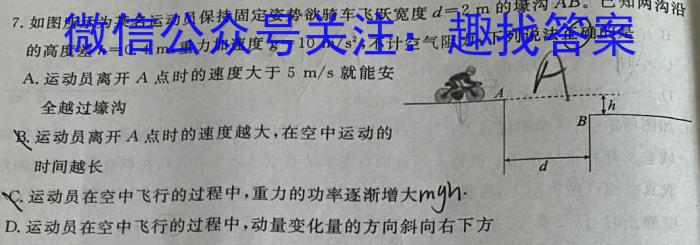 7. 如图所示为某名运动员保持固定姿势欲骑车飞跃宽度 d=2 m 的壕沟 AB。已知两沟沿
的高度差 h=0.4 m,重力加速度 g=10 m/s²,不计空气阻力,下列说法正确的是
微信公众号关注：趣找答案
A. 运动员离开 A 点时的速度大于 5 m/s 就能安
全越过壕沟
B. 运动员离开 A 点时的速度越大,在空中运动的
时间越长
C. 运动员在空中飞行的过程中,重力的功率逐渐增大 mgh.
D. 运动员在空中飞行的过程中,动量变化量的方向斜向右下方
A
A
B
h
d